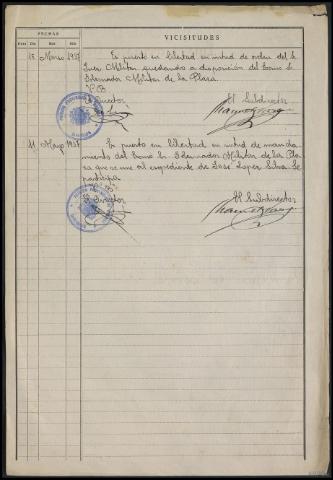 FECHAS
VICISITUDES
Día
Mes
Año
18 Marzo 1937
Es puesto en libertad en virtud de orden del Sr.
Juez Militar quedando a disposición del Excmo Sr.
Gobernador Militar de la Plaza.
Vº Bº
El Director
El Subdirector
11 Mayo 1937
Es puesto en libertad en virtud de manda-
miento del Excmo Sr. Gobernador Militar de la Pla-
za que se une al expediente de José Lopez Silva. Se
participa
El Director
El Subdirector